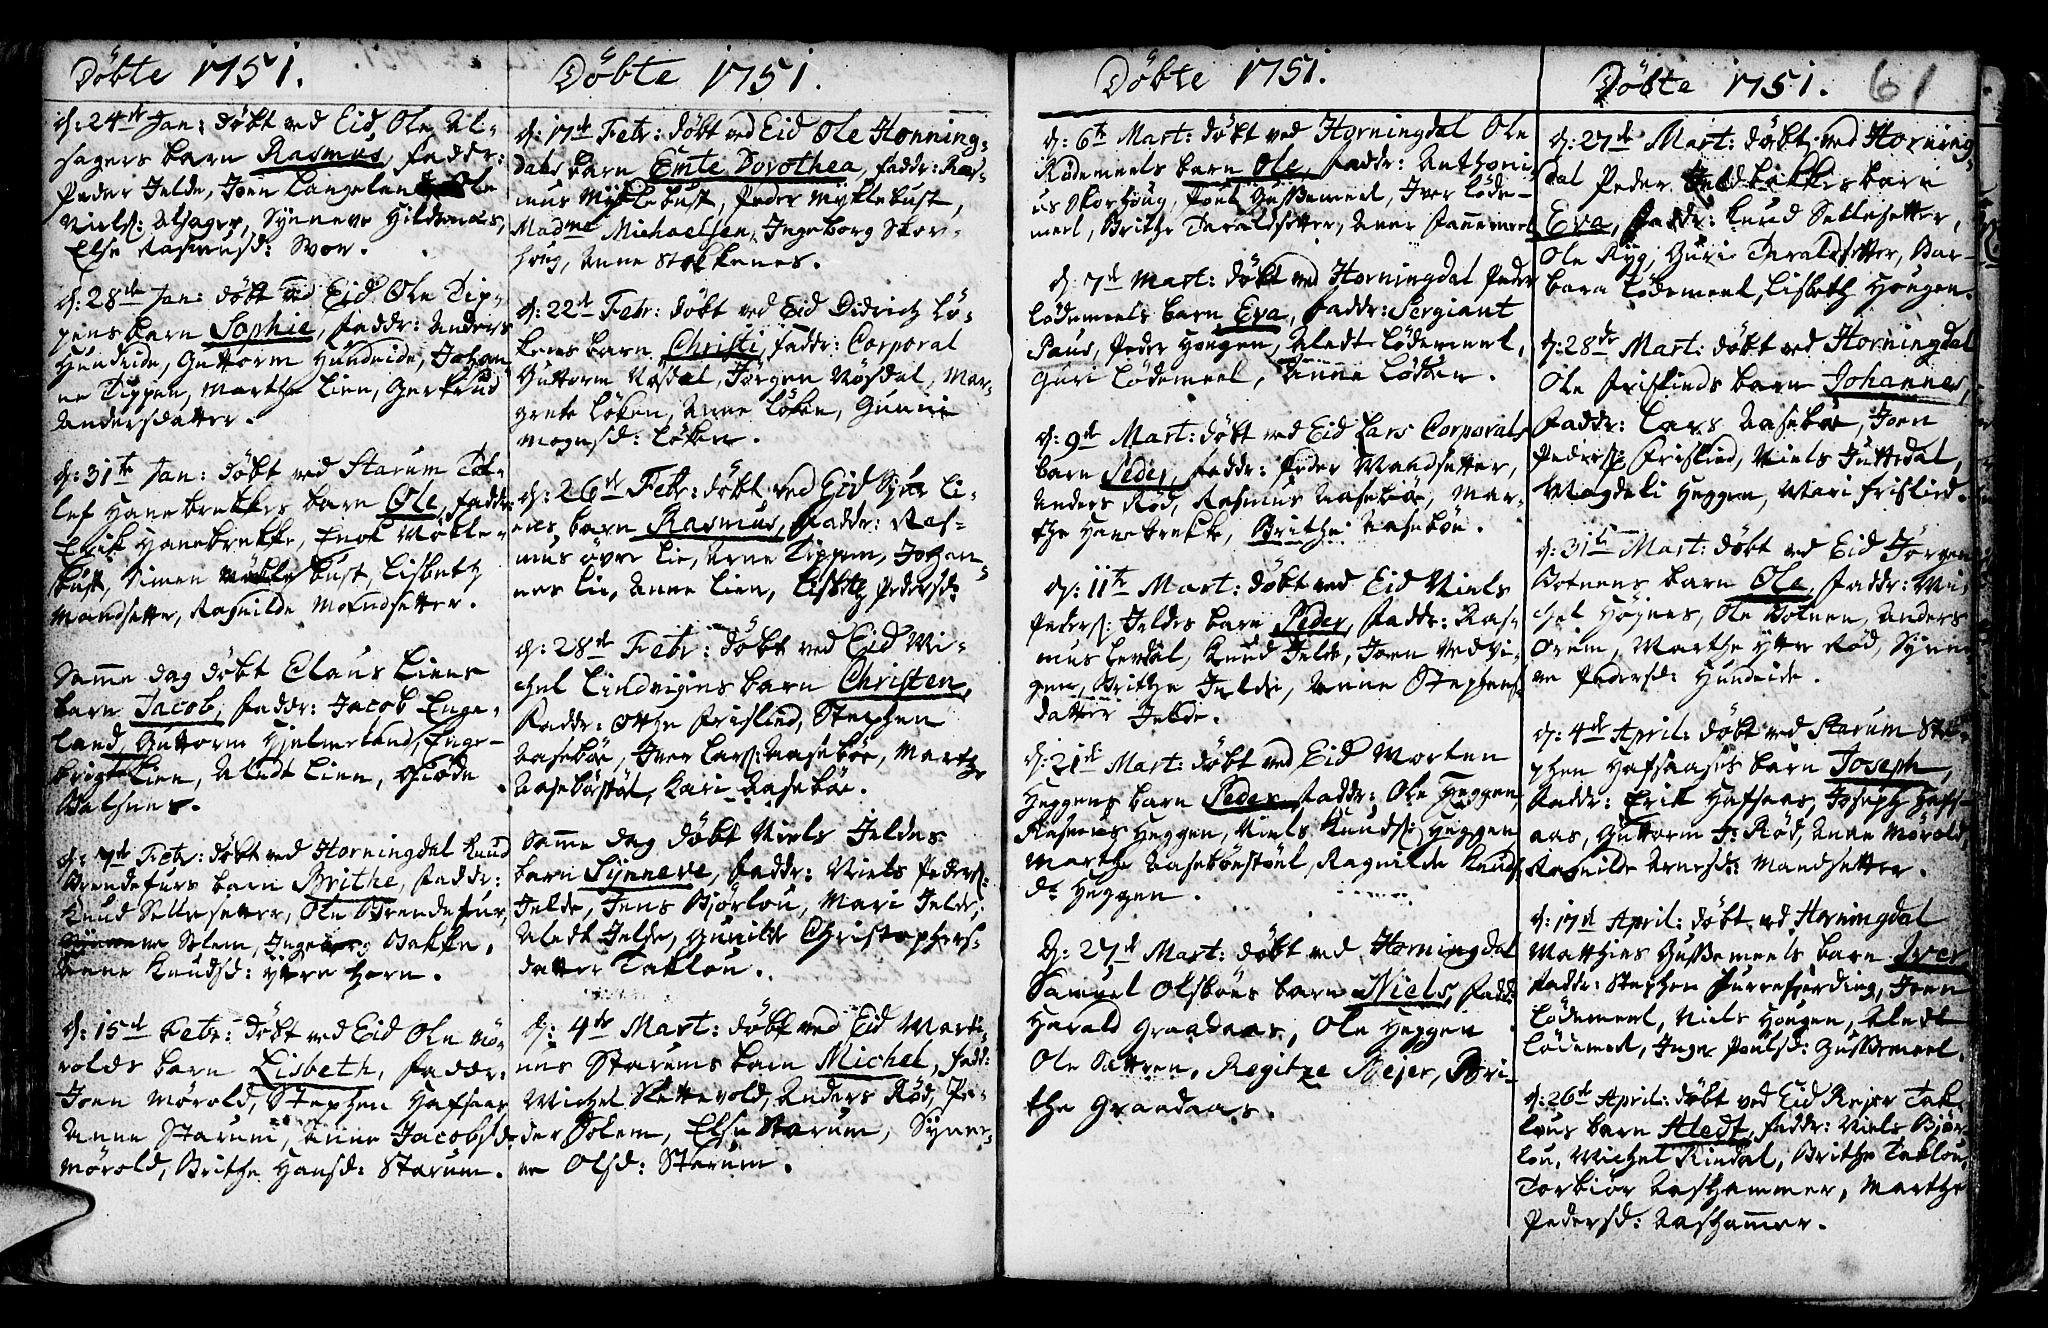 Döbte 1751.
d: 24de Jan: döbt ved Eid, Ole Al-
sagers barn Rasmus, faddr:
Peder Jelde, Joen Langeland, Ole
Niels: Alsager, Synneve Hildenes,
Else Rasmusd: Svor.
d: 28de Jan: döbt ved Eid Ole Tip-
pens barn Sophie, faddr: Anders
Hundeide, Guttorm Hundeide, Johan-
ne Tippen, Marthe Lien, Gertrud
Andersdatter.
d: 31te Jan: döbt ved Starum Det-
lef Hanebrekkes barn Ole, faddr:
Erik Hanebrekke, Enok Mökle-
bust, Simen Möklebust, Lisbeth
Mandsetter, Ragnilde Mandsetter.
Samme dag döbt Claus Liens
barn Jacob, faddr: Jacob Enge-
land, Guttorm Hjelmeland, Inge-
brigt Lien, Aledt Lien,
Balsnes.
d: 7de Febr: döbt ved Horningdal Knud
Brendefurs barn Brithe, faddr:
Knud Sellesetter, Ole Brendefur,
Solem, Bakke,
Anne Knudsd: ytre Horn.
d: 15de Febr: döbt ved Eid Ole Mö-
rolds barn Lisbeth, faddr:
Joen Mörold, Stephen Hafsaas,
Anne Starum, Anne Jacobsd:
Mörold, Brithe Hansd: Starum.
Döbte 1751.
d: 17de Febr: döbt ved Eid Ole Honning-
dals barn Emte Dorothea, faddr: Ras-
mus Myklebust, Peder Myklebust,
Madme Michaelsen, Ingeborg Skor-
houg, Anne Stokkenes.
d: 22de Febr: döbt ved Eid Didrich Lö-
kens barn Christi, faddr: Corporal
Guttorm Nösdal, Jörgen Nösdal, Mar-
grete Löken, Anne Löken, Gunni
Mognsd: Löken.
d: 26de Febr: döbt ved Eid Siur Li-
ens barn Rasmus, faddr: Ras-
mus övre Lie, Arne Tippen, Johan-
nes Lie, Anne Lien, Lisbet Pedersd:
d: 28de Febr: döbt ved Eid Mi-
chel Lindvigens barn Christen,
faddr: Otthe Frislied, Stephen
Aaseböe, Iver Lars: Aaseböe, Marthe
Aaseböstöl, Kari Aaseböe.
Samme dag döbt Niels Jeldes
barn Synneve, faddr: Niels Peders:
Jelde, Jens Björlou, Mari Jelde,
Aledt Jelde, Gunilde Christophers-
datter Taklou.
d: 4de Mart: döbt ved Eid Marti-
nus Starums barn Michel, fadd:
Michel Skettevold, Anders Röd, Pe-
der Solem, Else Starum, Synne-
ve Olsd: Starum.
Döbte 1751.
d: 6te Mart: döbt ved Horningdal Ole
Rödemeels barn Ole, faddr: Anthoni-
us Skorhoug, Poul Gusdemeel, Iver Löde-
meel, Brithe Taraldsetter, Anne Fannemeel
d: 7de Mart: döbt ved Horningdal Peder
Lödemeels barn Eva, faddr: Sergiant
Paus, Peder Hougen, Aledt Lödemeel,
Guri Lödemeel, Anne Lödöen.
d: 9de Mart: döbt ved Eid Lars Corporals
barn Peder, faddr: Peder Mandsetter,
Anders Röd, Rasmus Aaseböe, Mar-
the Hanebrekke, Brithe Aaseböe.
d: 11te Mart: döbt ved Eid Niels
Peders: Jeldes barn Peder, faddr: Ras-
mus Levdal, Knud Jelde, Joen Nedvi-
gen, Brithe Jelde, Anne Stephens
datter Jelde.
d: 21de Mart: döbt ved Eid Morten
Heggens barn Peder, faddr: Ole Heggen,
Rasmus Heggen, Niels Knuds: Heggen
Marthe Aaseböestöel, Ragnilde Knuds
dr Heggen.
d: 27de Mart: döbt ved Horningdal
Samuel Olsböes barn Niels, fadd:
Harald Graadaas, Ole Heggen
Ole Sætren, Regitze Bejer, Bri-
the Graadaas.
Döbte 1751. 61
d: 27de Mart: döbt ved Horning-
dal Peder Indbakkes barn
Eva, faddr: Knud Sellesetter,
Ole Ryg, Guri Taraldsetter, Bar-
bara Lödemeel, Lisbeth Hougen.
d: 28de Mart: döbt ved Horningdal
Ole Frislieds barn Johannes,
faddr: Lars Aaseböe, Joen
Peders: Frislied, Niels Juttedal,
Magdeli Heggen, Mari Frislied.
d: 31te Mart: döbt ved Eid Jörgen
Botnens barn Ole, faddr: Mi-
chel Höjnes, Ole Botnen, Anders
Orum, Marthe ytre Röd, Synne-
ve Pedersd: Hundeide.
d: 4de April: döbt ved Starum Ste-
phen Hafsaases barn Joseph,
faddr: Erik Hafsaas, Joseph Hafs-
aas, Guttorm J: Röd, Anne Mörold,
Ragnilde Arnesd: Mandsetter.
d: 17de April: döbt ved Horningdal
Matthies Gusdemeels barn Iver
faddr: Stephen Purrefierding, Joen
Lödemeel, Niels Hougen, Aledt
Lödemeel, Inger Poulsd: Gusdemeel.
d: 26de April: döbt ved Eid Rejer Tak-
lous barn Aledt, faddr: Niels Björ-
lou, Michel Rindal, Brithe Taklou,
Torbiör Aashammer, Marthe
Pedersd: Aashammer.